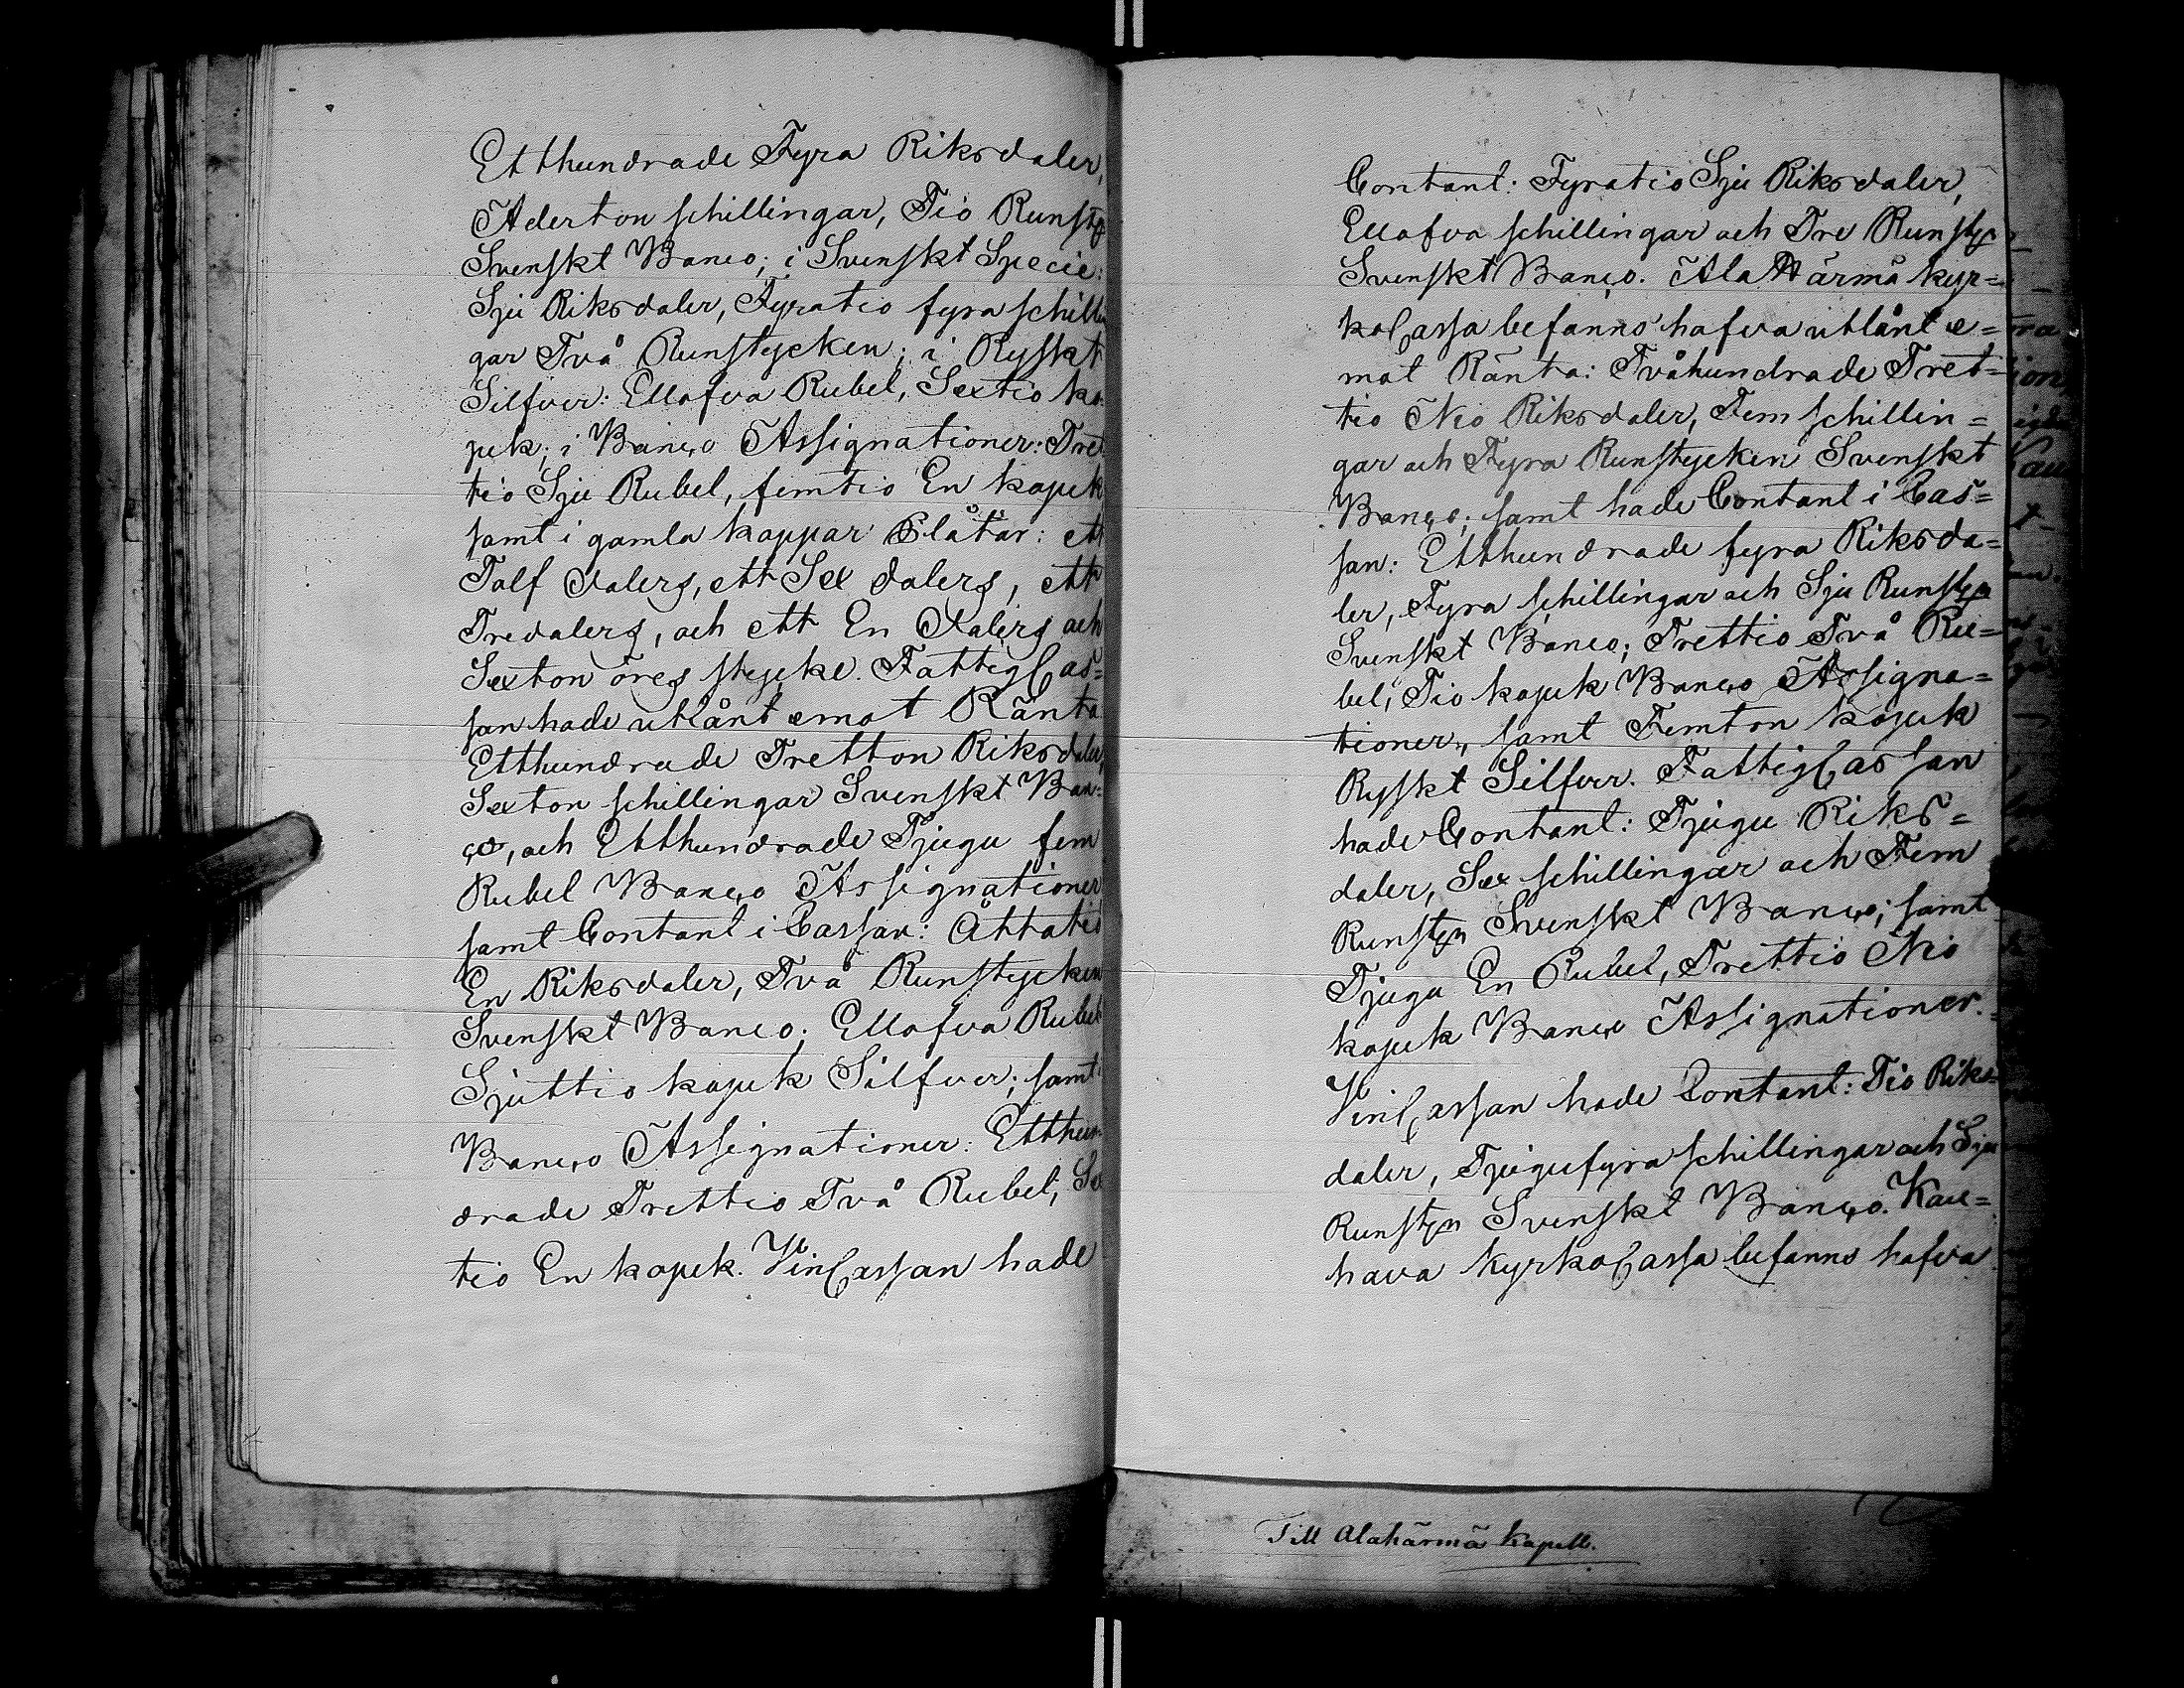 Etthundrade Fyra Riksdaler,
Aderton schillingar, Tio Runst:
Svenskt Banco; i Svenskt Specie:
Sju Riksdaler, Fyratio fyra schillin
gar Två Runstycken; i Ryskt
Silfver: Ellofva Rubel, Sextio ko-
pek; i Banco Assignationer: Tret
tio Sju Rubel, femtio En kopek
samt i gamla koppar Plåtar: ett
Tolf Dalers, ett Sex dalers, ett
Tredalers, och ett En Dalers och
Sexton öres stycke. FattigCas=
san hade utlånt emot Ränta
Etthundrade Tretton Riksdaler,
Sexton schillingar Svenskt Ban=
co, och Etthundrade Tjugu fem
Rubel Banco Assignationer
samt Contant i Cassan: Åttatio
En Riksdaler, Två Runstycken
Svenskt Banco; Ellofva Rubel
Sjuttio kopek Silfver; samt
Banco Assignationer: Etthun-
drade Trettio Två Rubel, Sex
tio En kopek. VinCassan hade
Contant: Fyratio Sju Riksdaler,
Ellofva schillingar och Tre Runst:
Svenskt Banco. Ala Härmä kyr=
koCassa befanns hafva utlånt e=
mot Ränta: Tvåhundrade Tret=
tio Nio Riksdaler, Fem schillin=
gar och Fyra Runstycken Svenskt
Banco; samt hade Contant i Cas=
san: Etthundrade fyra Riksda=
ler, Fyra schillingar och Sju Runst:
Svenskt Banco; Trettio Två Ru=
bel, Tio kopek Banco Assigna=
tioner, samt Femton kopek
Ryskt Silfver. FattigCassan
hade Contant: Tjugu Riks=
daler, Sex schillingar och Fem
Runst: Svenskt Banco; samt
Tjugu En Rubel, Trettio Nio
kopek Banco Assignationer.
VinCassan hade Contant: Tio Riks=
daler, Tjugufyra schillingar och Sju
Runst: Svenskt Banco. Kau=
hava KyrkoCassa befanns hafva
Till Alahärmä Kapell.